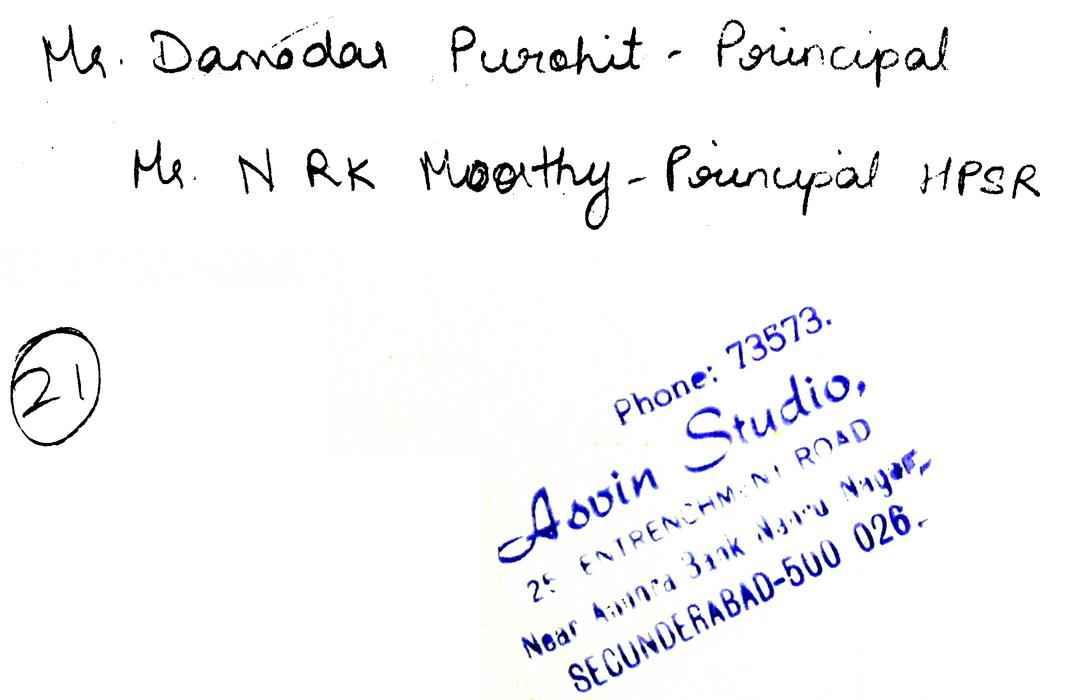 Mr. Damodar Purohit - Principal
Mr. N RK Moorthy - Principal HPSR
21
Phone: 73573.
Asvin Studio,
ENTRENCHMENT ROAD
Near Andhra Bank Nehru Nagar,
SECUNDERABAD-500 026.